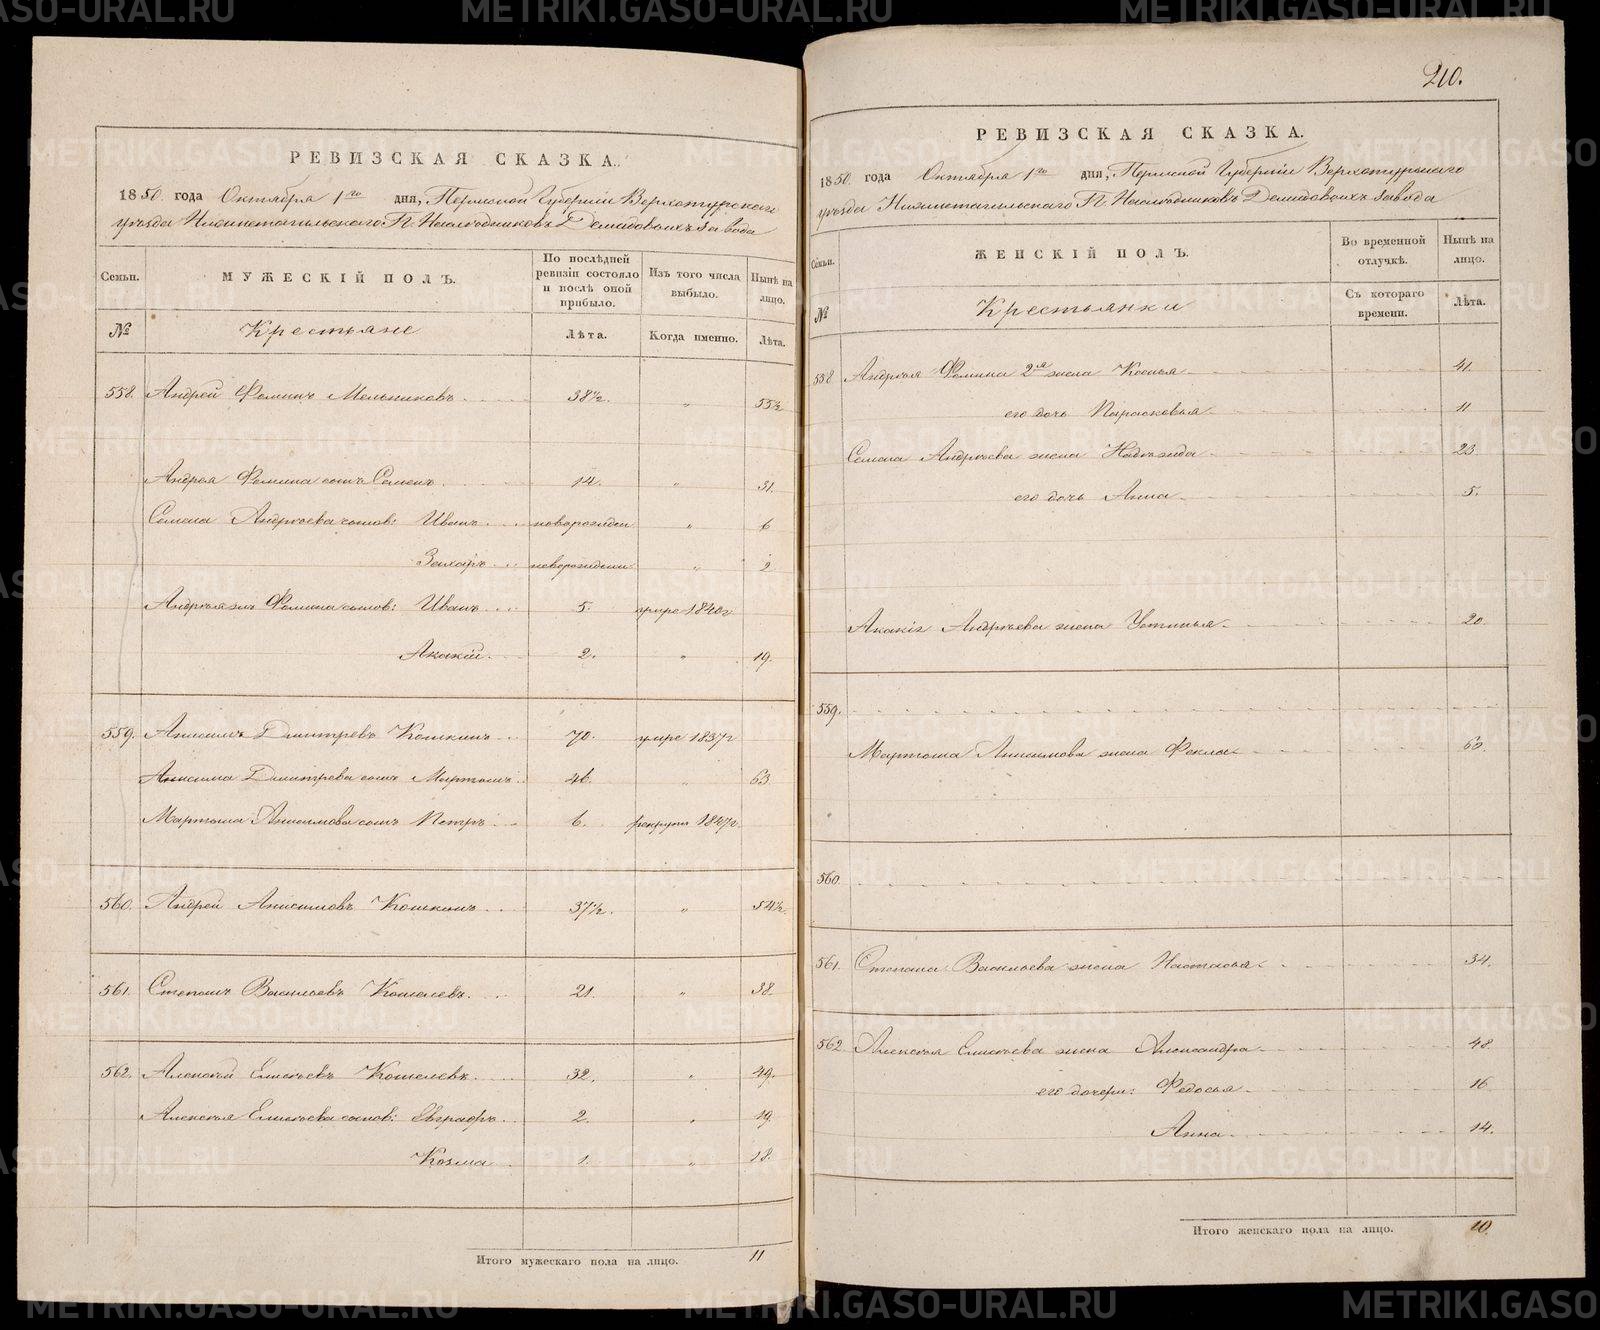 РЕВИЗСКАЯ СКАЗКА.
1850 года Октября 1го дня, Пермской Губерніи Верхотурскаго
уѣзда Нижнетагильскаго Гг. Наслѣдниковъ Демидовыхъ завода
Семьи. МУЖЕСКІЙ ПОЛЪ. По послѣдней ревизіи состояло и послѣ оной прибыло. Изъ того числа выбыло. Нынѣ на лицо.
№ Крестьяне Лѣта. Когда именно. Лѣта.
558. Андрей Фоминъ Мельниковъ 38½. " 55½
Андрея Фомина сынъ Семенъ 14. " 31.
Семена Андрѣева сынов: Иванъ новорожден " 6
Захаръ новорожден " 2
Андрѣя Фомина сынов: Иванъ 5. умре 1840г
Акакій 2. " 19.
559. Анисимъ Дмитревъ Кошкинъ 70. умре 1837г
Анисима Дмитрева сынъ Мартынъ 46. " 63
Мартына Анисимова сынъ Петръ 6. рекрутъ 1847г
560. Андрей Анисимовъ Кошкинъ 37½. " 54½.
561. Степанъ Васильевъ Кошелевъ 21. " 38.
562. Алексѣй Елисѣевъ Кошелевъ 32. " 49.
Алексѣя Елисѣева сынов: Евграфъ 2. " 19.
Козма 1. " 18.
Итого мужескаго пола на лицо. 11
210.
РЕВИЗСКАЯ СКАЗКА.
1850 года Октября 1го дня, Пермской Губерніи Верхотурскаго
уѣзда Нижнетагильскаго Гг. Наслѣдниковъ Демидовыхъ завода
Семьи. ЖЕНСКІЙ ПОЛЪ. Во временной отлучкѣ. Нынѣ на лицо.
№ Крестьянки Съ котораго времени. Лѣта.
558 Андрѣя Фомина 2я жена Ксенья 41.
его дочь Парасковья 11
Семена Андрѣева жена Надежда 23
его дочь Анна 5.
Акакія Андрѣева жена Устинья 20.
559.
Мартына Анисимова жена Фекла 60.
560.
561. Степана Васильева жена Настасья 34.
562 Алексѣя Елисѣева жена Александра 48.
его дочери: Федосья 16
Анна 14.
Итого женскаго пола на лицо. 10.
METRIKI.GASO-URAL.RU